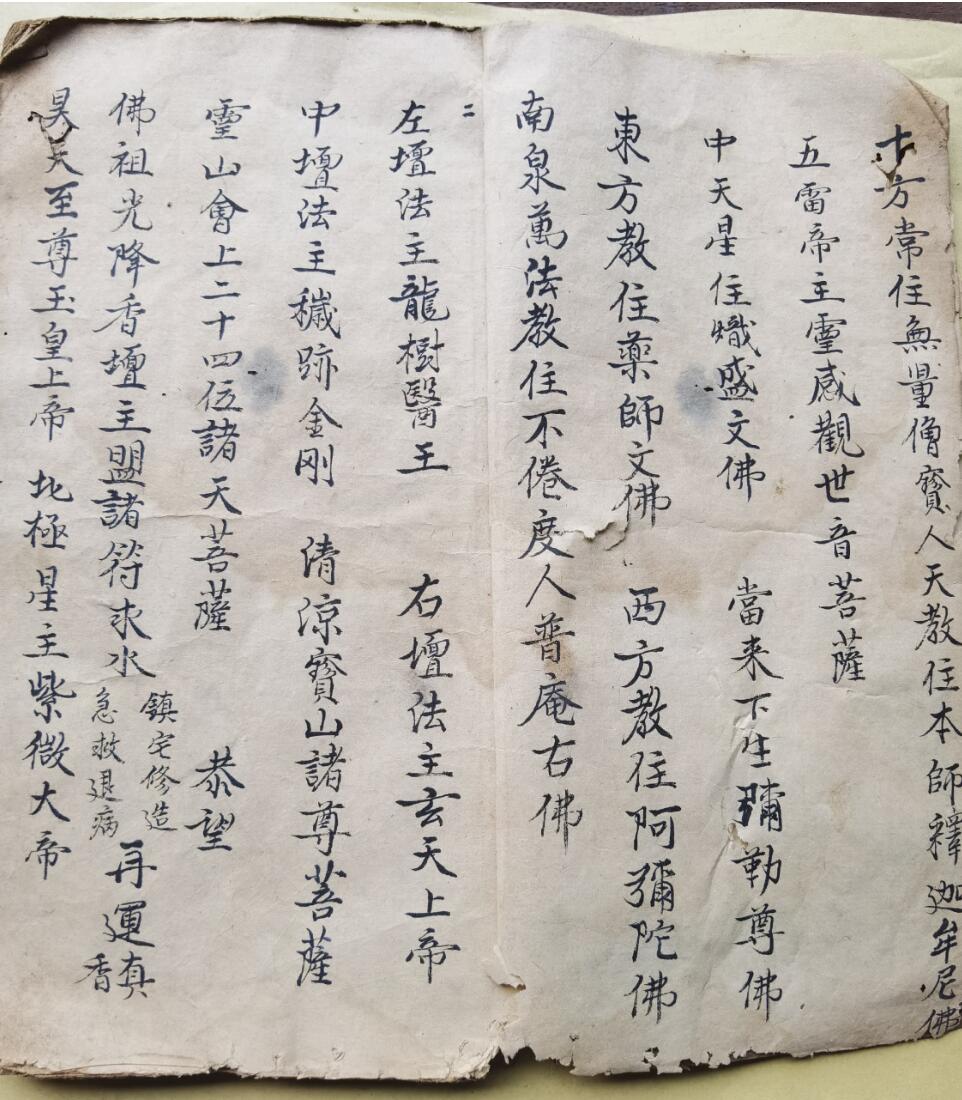 十方常住無量僧寳人天教住本師釋迦牟尼佛
五雷帝主靈感觀世音菩薩
中天星住熾盛文佛 當来下生彌勒尊佛
東方教住藥師文佛 西方教住阿彌陀佛
南泉萬法教住不倦度人普庵右佛
二
左壇法主龍樹醫王 右壇法主玄天上帝
中壇法主穢跡金刚 清凉寳山諸尊菩薩
靈山會上二十四位諸天菩薩 恭望
佛祖光降香壇主盟諸符求水 鎮宅修造 急救退病 再運真香
昊天至尊玉皇上帝 北極星主紫微大帝